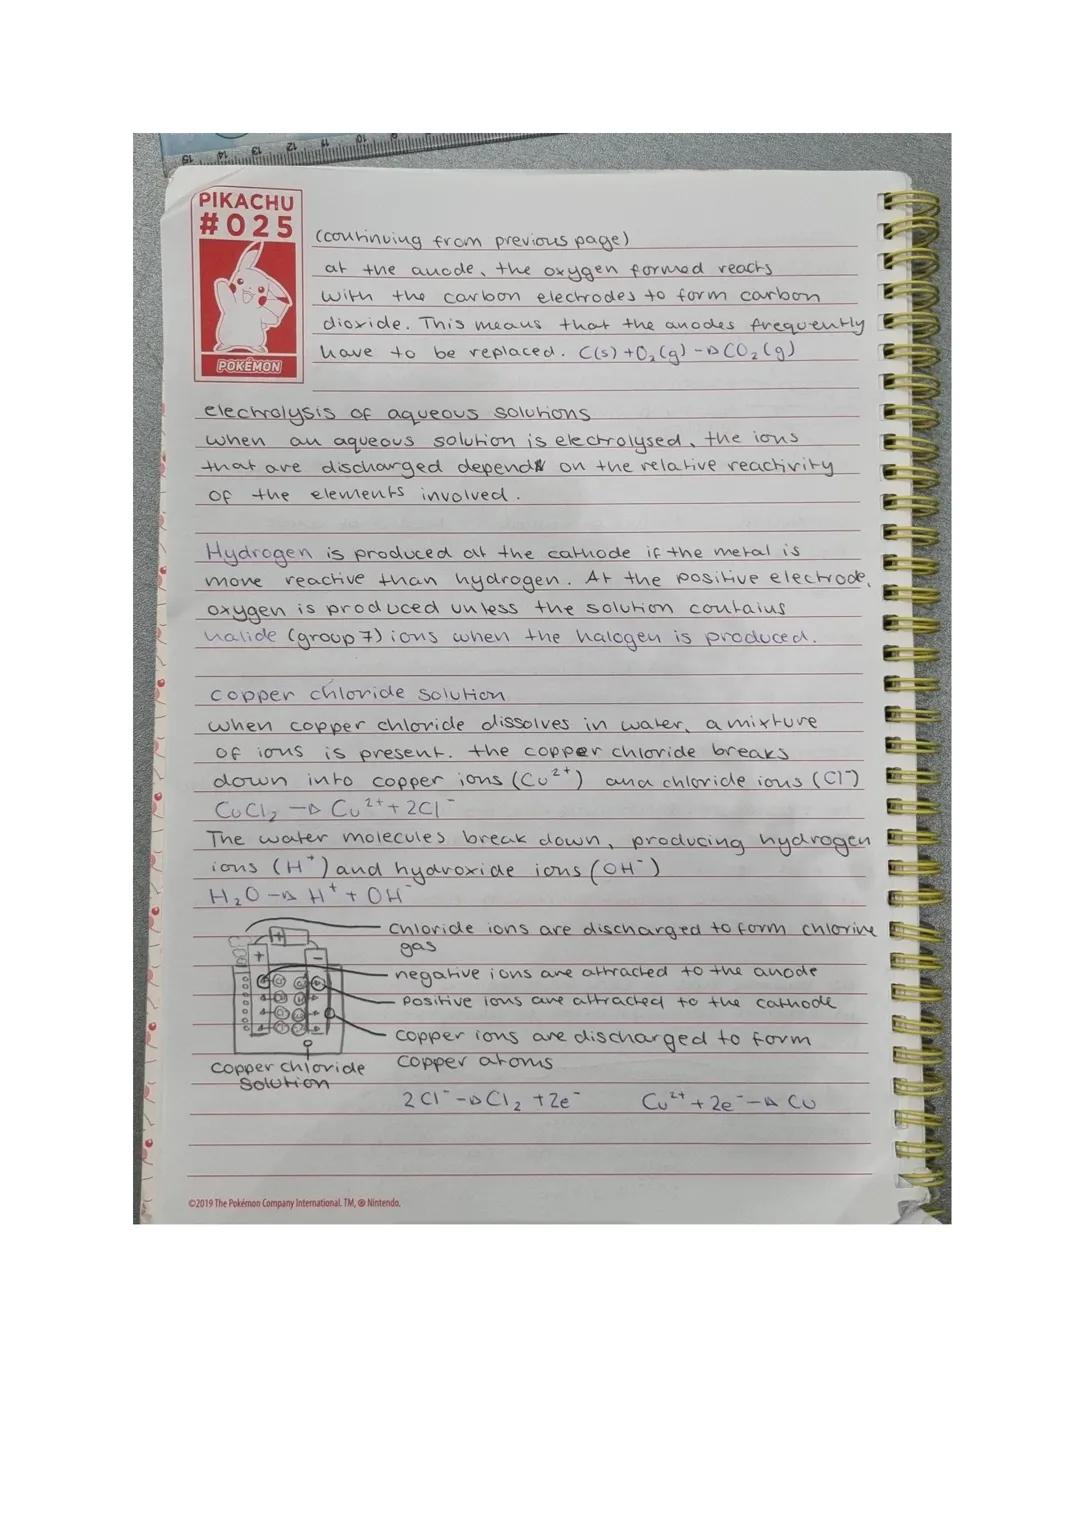 15 14 13 12 11 10 9
PIKACHU
#025
POKÉMON
(continuing from previous page)
at the anode, the oxygen formed reacts
with the carbon electrodes to form carbon
dioxide. This means that the anodes frequently
have to be replaced. C(s) + O₂(g) → CO₂(g)
electrolysis of aqueous solutions
when an aqueous solution is electrolysed, the ions
that are discharged depend on the relative reactivity
of the elements involved.
Hydrogen is produced at the cathode if the metal is
more reactive than hydrogen. At the positive electrode,
oxygen is produced unless the solution contains
halide (group 7) ions when the halogen is produced.
copper chloride solution
when copper chloride dissolves in water, a mixture
of ions is present. the copper chloride breaks
down into copper ions (Cu²⁺) and chloride ions (Cl⁻)
CuCl₂ → Cu²⁺ + 2Cl⁻
The water molecules break down, producing hydrogen
ions (H⁺) and hydroxide ions (OH⁻)
H₂O → H⁺ + OH⁻
chloride ions are discharged to form chlorine
gas
negative ions are attracted to the anode
positive ions are attracted to the cathode
copper ions are discharged to form
copper atoms
+ −
copper chloride
solution
2Cl⁻ → Cl₂ + 2e⁻ Cu²⁺ + 2e⁻ → Cu
©2019 The Pokémon Company International. TM, ® Nintendo.